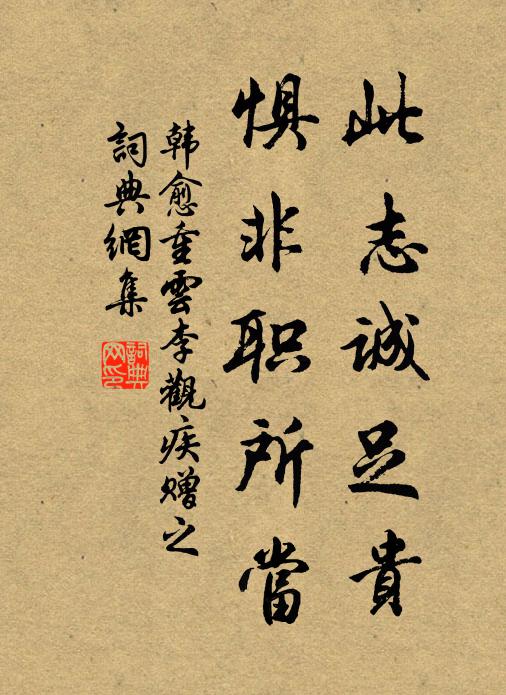 此志诚足貴
惧非职所當
韩愈重雲李觀疾赠之
詞典網集
詞典网印